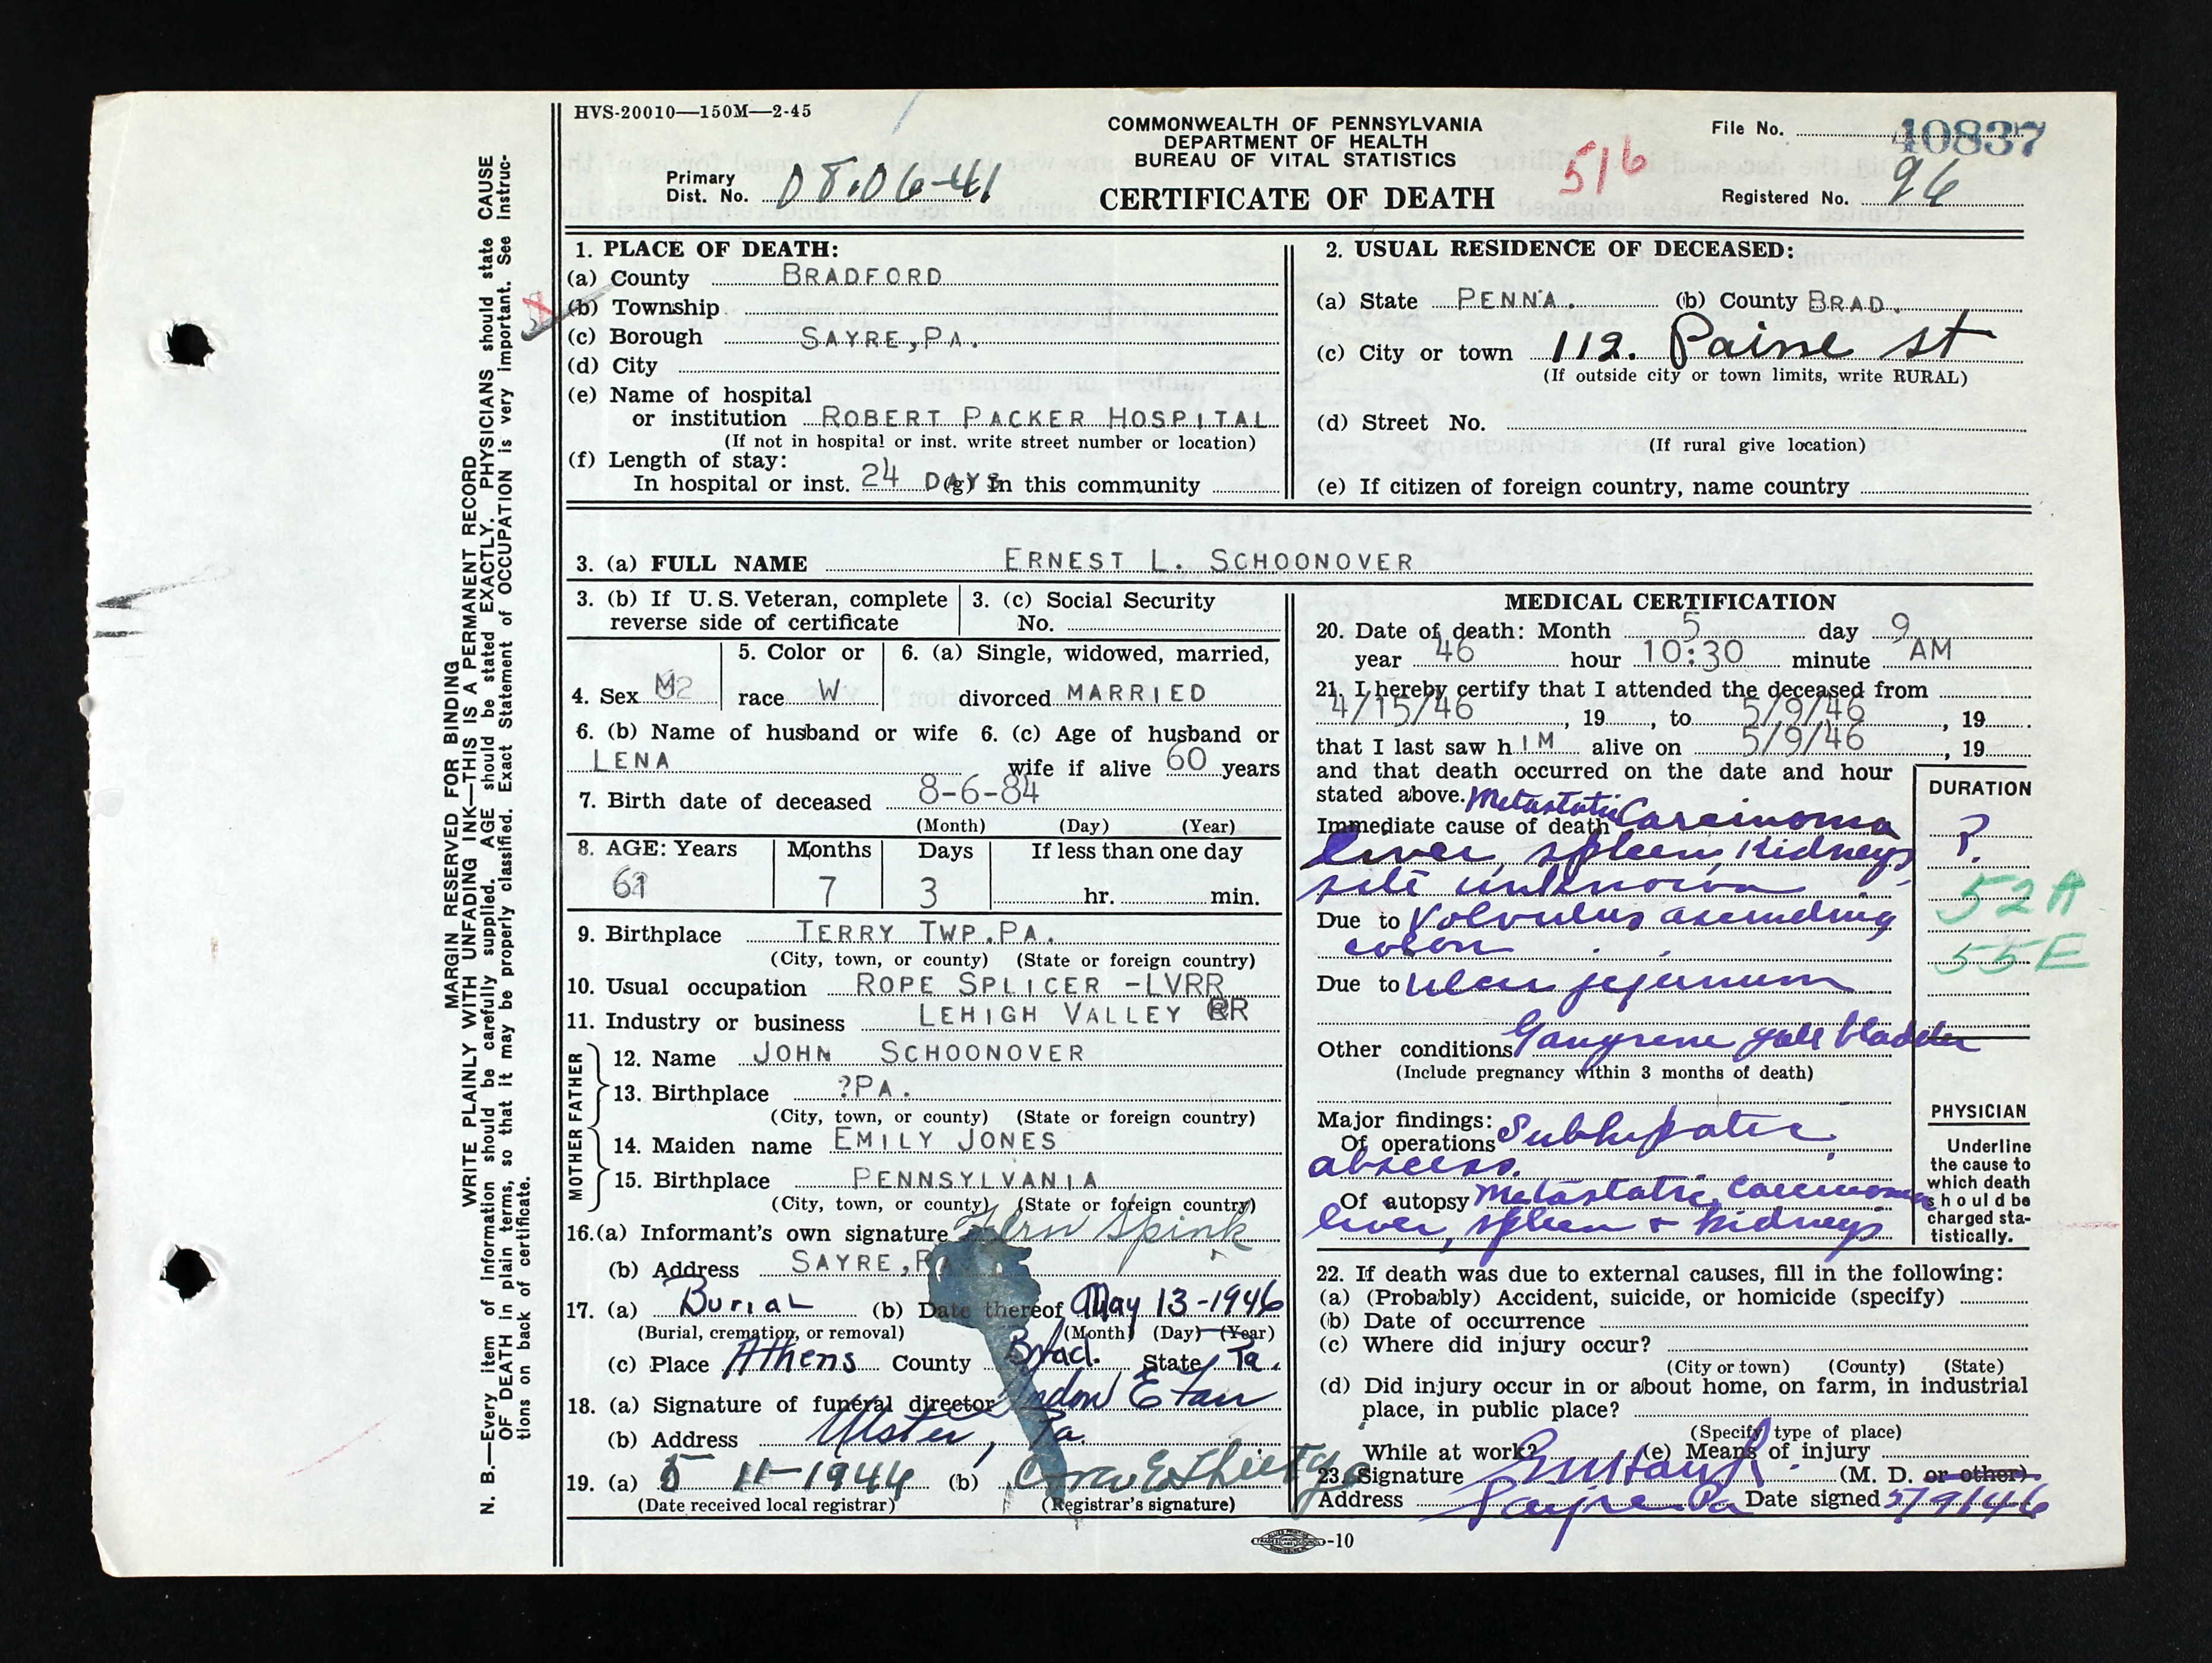 HVS-20010—150M—2-45
COMMONWEALTH OF PENNSYLVANIA
DEPARTMENT OF HEALTH
BUREAU OF VITAL STATISTICS
CERTIFICATE OF DEATH
516
File No. 40837
Primary
Dist. No. 08-06-41
Registered No. 96
MARGIN RESERVED FOR BINDING
WRITE PLAINLY WITH UNFADING INK—THIS IS A PERMANENT RECORD
N. B.—Every item of information should be carefully supplied. AGE should be stated EXACTLY. PHYSICIANS should state CAUSE
OF DEATH in plain terms, so that it may be properly classified. Exact Statement of OCCUPATION is very important. See Instruc-
tions on back of certificate.
1. PLACE OF DEATH:
(a) County BRADFORD
(b) Township
(c) Borough SAYRE, PA.
(d) City
(e) Name of hospital
or institution ROBERT PACKER HOSPITAL
(If not in hospital or inst. write street number or location)
(f) Length of stay:
In hospital or inst. 24 DAYS (g) In this community
2. USUAL RESIDENCE OF DECEASED:
(a) State PENNA. (b) County BRAD.
(c) City or town 112. Paine St
(If outside city or town limits, write RURAL)
(d) Street No.
(If rural give location)
(e) If citizen of foreign country, name country
3. (a) FULL NAME ERNEST L. SCHOONOVER
3. (b) If U. S. Veteran, complete
reverse side of certificate
3. (c) Social Security
No.
4. Sex M
5. Color or
race W
6. (a) Single, widowed, married,
divorced MARRIED
6. (b) Name of husband or wife
LENA
6. (c) Age of husband or
wife if alive 60 years
7. Birth date of deceased 8-6-84
(Month) (Day) (Year)
8. AGE: Years Months Days If less than one day
61 7 3 hr. min.
9. Birthplace TERRY TWP. PA.
(City, town, or county) (State or foreign country)
10. Usual occupation ROPE SPLICER -LVRR
11. Industry or business LEHIGH VALLEY RR
FATHER
12. Name JOHN SCHOONOVER
13. Birthplace ?PA.
(City, town, or county) (State or foreign country)
MOTHER
14. Maiden name EMILY JONES
15. Birthplace PENNSYLVANIA
(City, town, or county) (State or foreign country)
16.(a) Informant's own signature Fern Spink
(b) Address SAYRE, PA
17. (a) Burial (b) Date thereof May 13-1946
(Burial, cremation, or removal) (Month) (Day) (Year)
(c) Place Athens County Brad. State Pa.
18. (a) Signature of funeral director E Farr
(b) Address Ulster, Pa.
19. (a) 5 11-1946 (b)
(Date received local registrar) (Registrar's signature)
MEDICAL CERTIFICATION
20. Date of death: Month 5 day 9
year 46 hour 10:30 minute AM
21. I hereby certify that I attended the deceased from
4/15/46, 19 , to 5/9/46, 19
that I last saw hIM alive on 5/9/46, 19
and that death occurred on the date and hour
stated above.
DURATION
Immediate cause of death Metastatic Carcinoma
liver, spleen, Kidneys
site unknown
?
Due to Volvulus ascending
colon
52A
55E
Due to Ulcer jejunum
Other conditions Gangrene gall bladder
(Include pregnancy within 3 months of death)
Major findings:
Of operations Subhepatic
abscess.
Of autopsy Metastatic Carcinoma
liver, spleen + kidneys
PHYSICIAN
Underline
the cause to
which death
should be
charged sta-
tistically.
22. If death was due to external causes, fill in the following:
(a) (Probably) Accident, suicide, or homicide (specify)
(b) Date of occurrence
(c) Where did injury occur?
(City or town) (County) (State)
(d) Did injury occur in or about home, on farm, in industrial
place, in public place?
(Specify type of place)
While at work? (e) Means of injury
23. Signature (M. D. or other)
Address Sayre Pa Date signed 5/9/46
-10